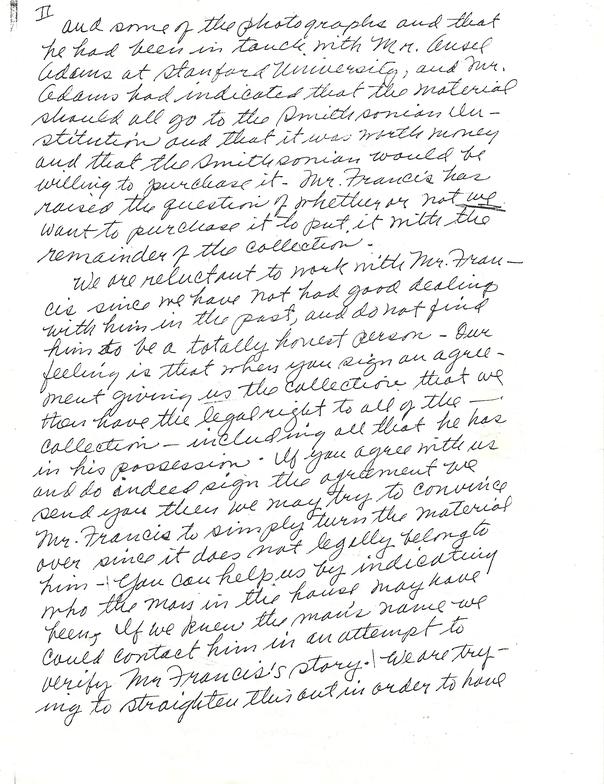 II
and some of the photographs and that
he had been in touch with Mr. Ansel
Adams at Stanford University, and Mr.
Adams had indicated that the material
should all go to the Smithsonian In-
stitution and that it was worth money
and that the Smithsonian would be
willing to purchase it - Mr. Francis has
raised the question of whether or not we
want to purchase it to put it with the
remainder of the collection -
We are reluctant to work with Mr. Fran-
cis since we have not had good dealing
with him in the past, and do not find
him to be a totally honest person - Our
feeling is that when you sign an agree-
ment giving us the collection that we
then have the legal right to all of the —
collection - including all that he has
in his possession. If you agree with us
and do indeed sign the agreement we
send you then we may try to convince
Mr. Francis to simply turn the material
over since it does not legally belong to
him - You can help us by indicating
who the man in the house may have
been. If we knew the man's name we
could contact him in an attempt to
verify Mr Francis's story. We are try-
ing to straighten this out in order to have